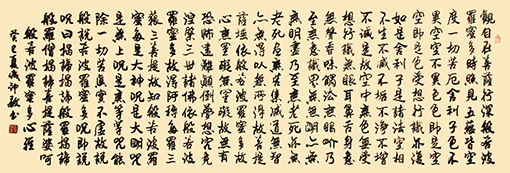 觀自在菩薩行深般若波
羅蜜多時照見五蘊皆空
度一切苦厄舍利子色不
異空空不異色色即是空
空即是色受想行識亦復
如是舍利子是諸法空相
不生不滅不垢不淨不增
不減是故空中無色無受
想行識無眼耳鼻舌身意
無色聲香味觸法無眼界乃
至無意識界無無明亦
無無明盡乃至無老死亦無
老死盡無苦集滅道無智
亦無得以無所得故菩提
薩埵依般若波羅蜜多故
心無罣礙無罣礙故無有
恐怖遠離顛倒夢想究竟
涅槃三世諸佛依般若波
羅蜜多故得阿耨多羅三
藐三菩提故知般若波羅
蜜多是大神呪是大明呪
是無上呪是無等等呪能
除一切苦真實不虛故說
般若波羅蜜多呪即說
呪曰揭諦揭諦般羅揭諦
般羅僧揭諦菩提薩婆呵
般若波羅蜜多心經
癸巳夏書